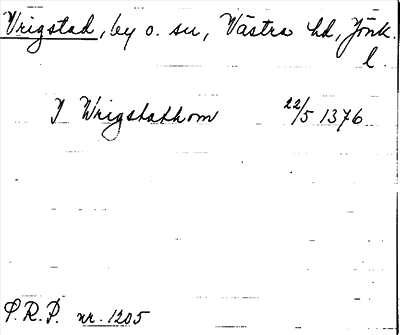 Vrigstad, by o. sn, Västra hd, Jönk.
l.
J Wrigstathom 22/5 1376
P.R.P. nr. 1205